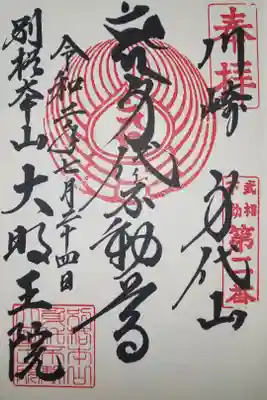 奉拝
川崎 身代山
武相不動
第一番
身代不動尊
令和二年七月二十四日
別格本山 大明王院